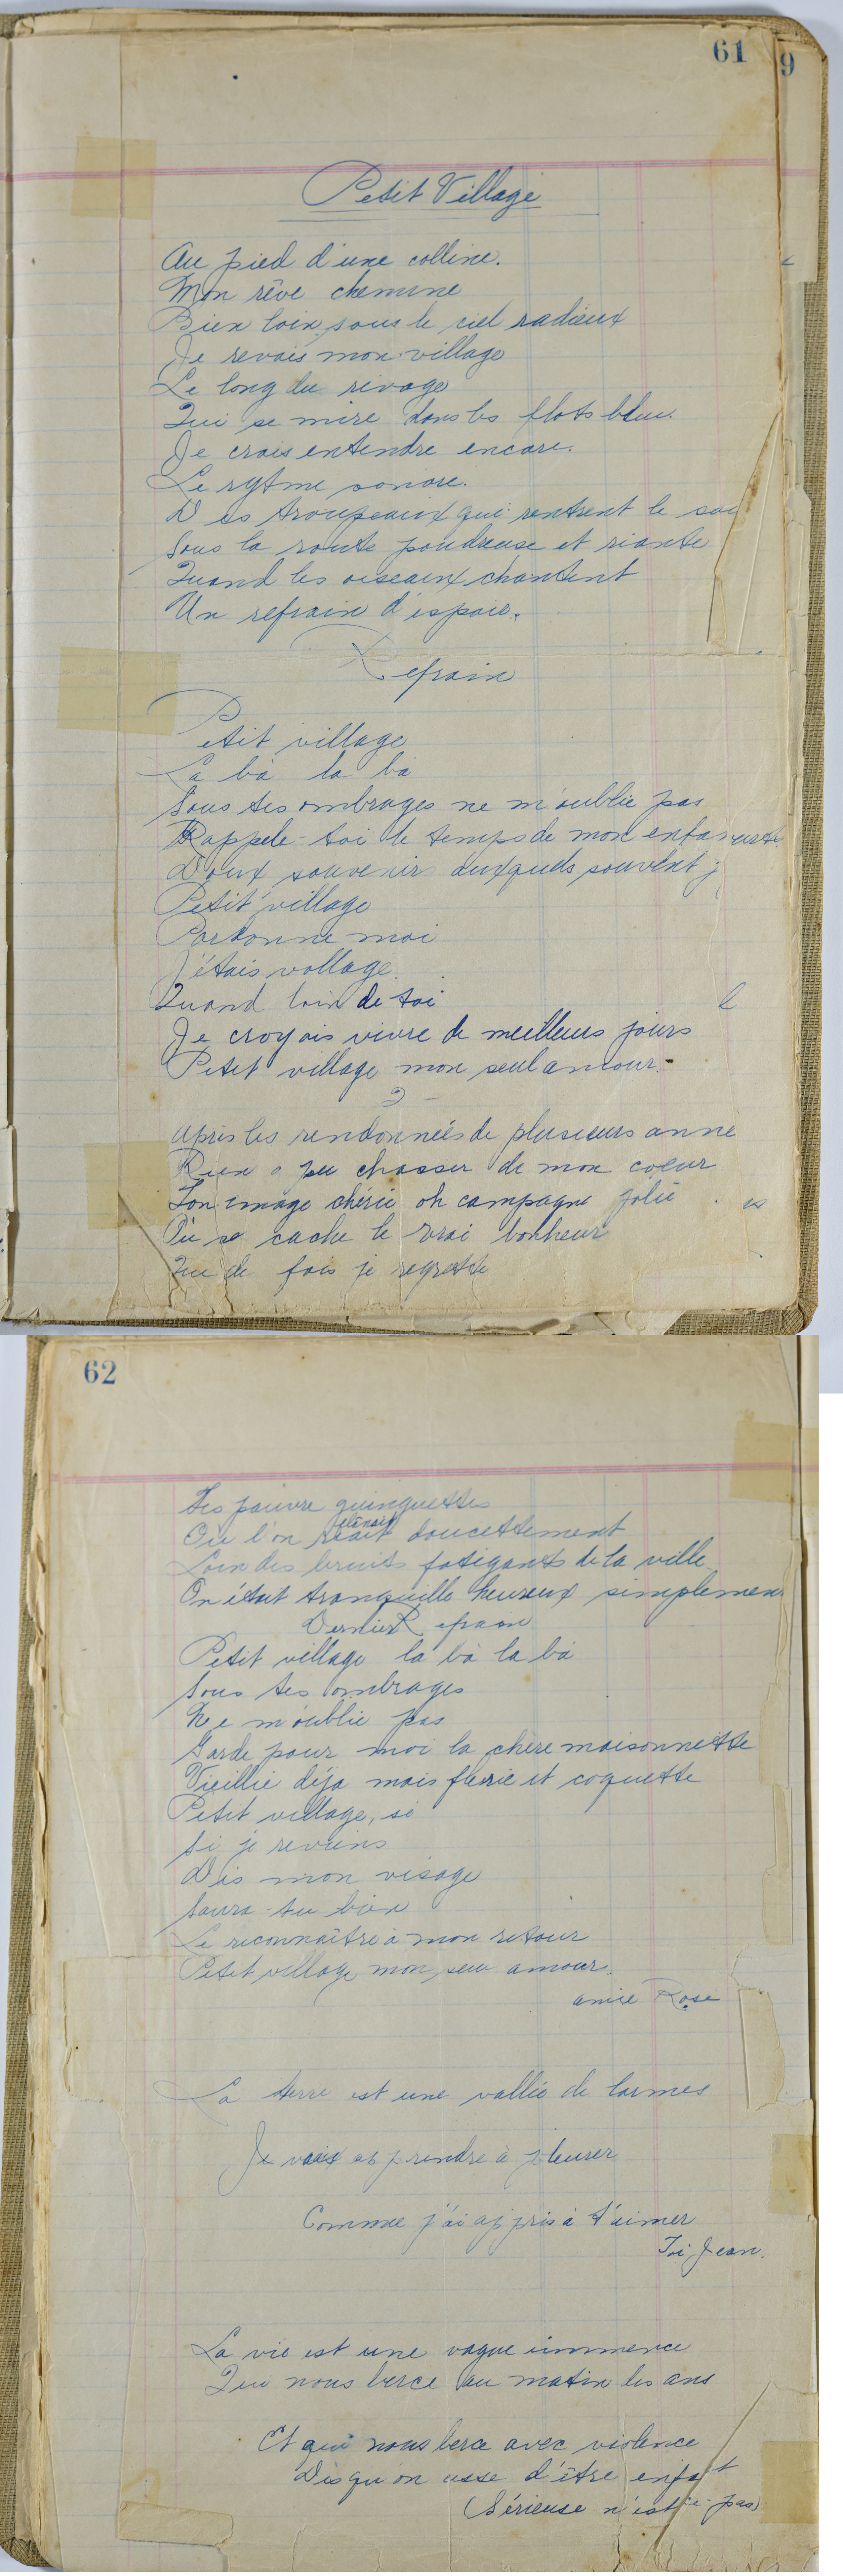 61
9
Petit Village
Au pied d'une colline.
Mon rêve chemine
Bien loin sous le ciel radieux
Je revois mon village
Le long du rivage
Qui se mire dans les flots bleu.
Je crois entendre encore.
Le rytme sonore.
Des troupeaux qui rentrent le soi
Sous la route poudreuse et riante
Quand les oiseaux chantent
Un refrain d'espoir.
Refrain
Petit village
La bà la bà
Sous tes ombrages ne m'oublie pas
Rappele-toi le temps de mon
Doux souvenirs auxquels souvent j
Petit village
Pardonne moi
J'étais vollage.
Quand loin de toi
Je croyais vivre de meilleurs jours
Petit village mon seul amour.-
2 -
Après les randonnées de plusieurs anne
Rien a pu chasser de mon coeur
Ton image chérie oh campagne jolie
es
Où se cache le vrai bonheur
Que de fois je regrette
62
Tes pauvre guinguettes
Ou l'on doucettement
Loin des bruits fatigants de la ville
On était tranquille heureux simplemen
Dernier Refrain
Petit village la bà la bà
Sous tes ombrages
Ne m'oublie pas
Garde pour moi la chère maisonnette
Vieillie déja mais fleurie et coquette
Petit village, si
Si je reviens
Dis mon visage
Saura-tu bien
Le reconnaître à mon retour
Petit village mon seu amour.
amie Rose
La terre est une vallée de larmes
Je vais apprendre à pleurer
Comme j'ai appris à t'aimer
Toi Jean.
La vie est une vague immence
Qui nous berce au matin les ans
Et qui nous berce avec violence
Dis qu'on cesse d'être enfant
(Sérieuse n'est-ce-pas)